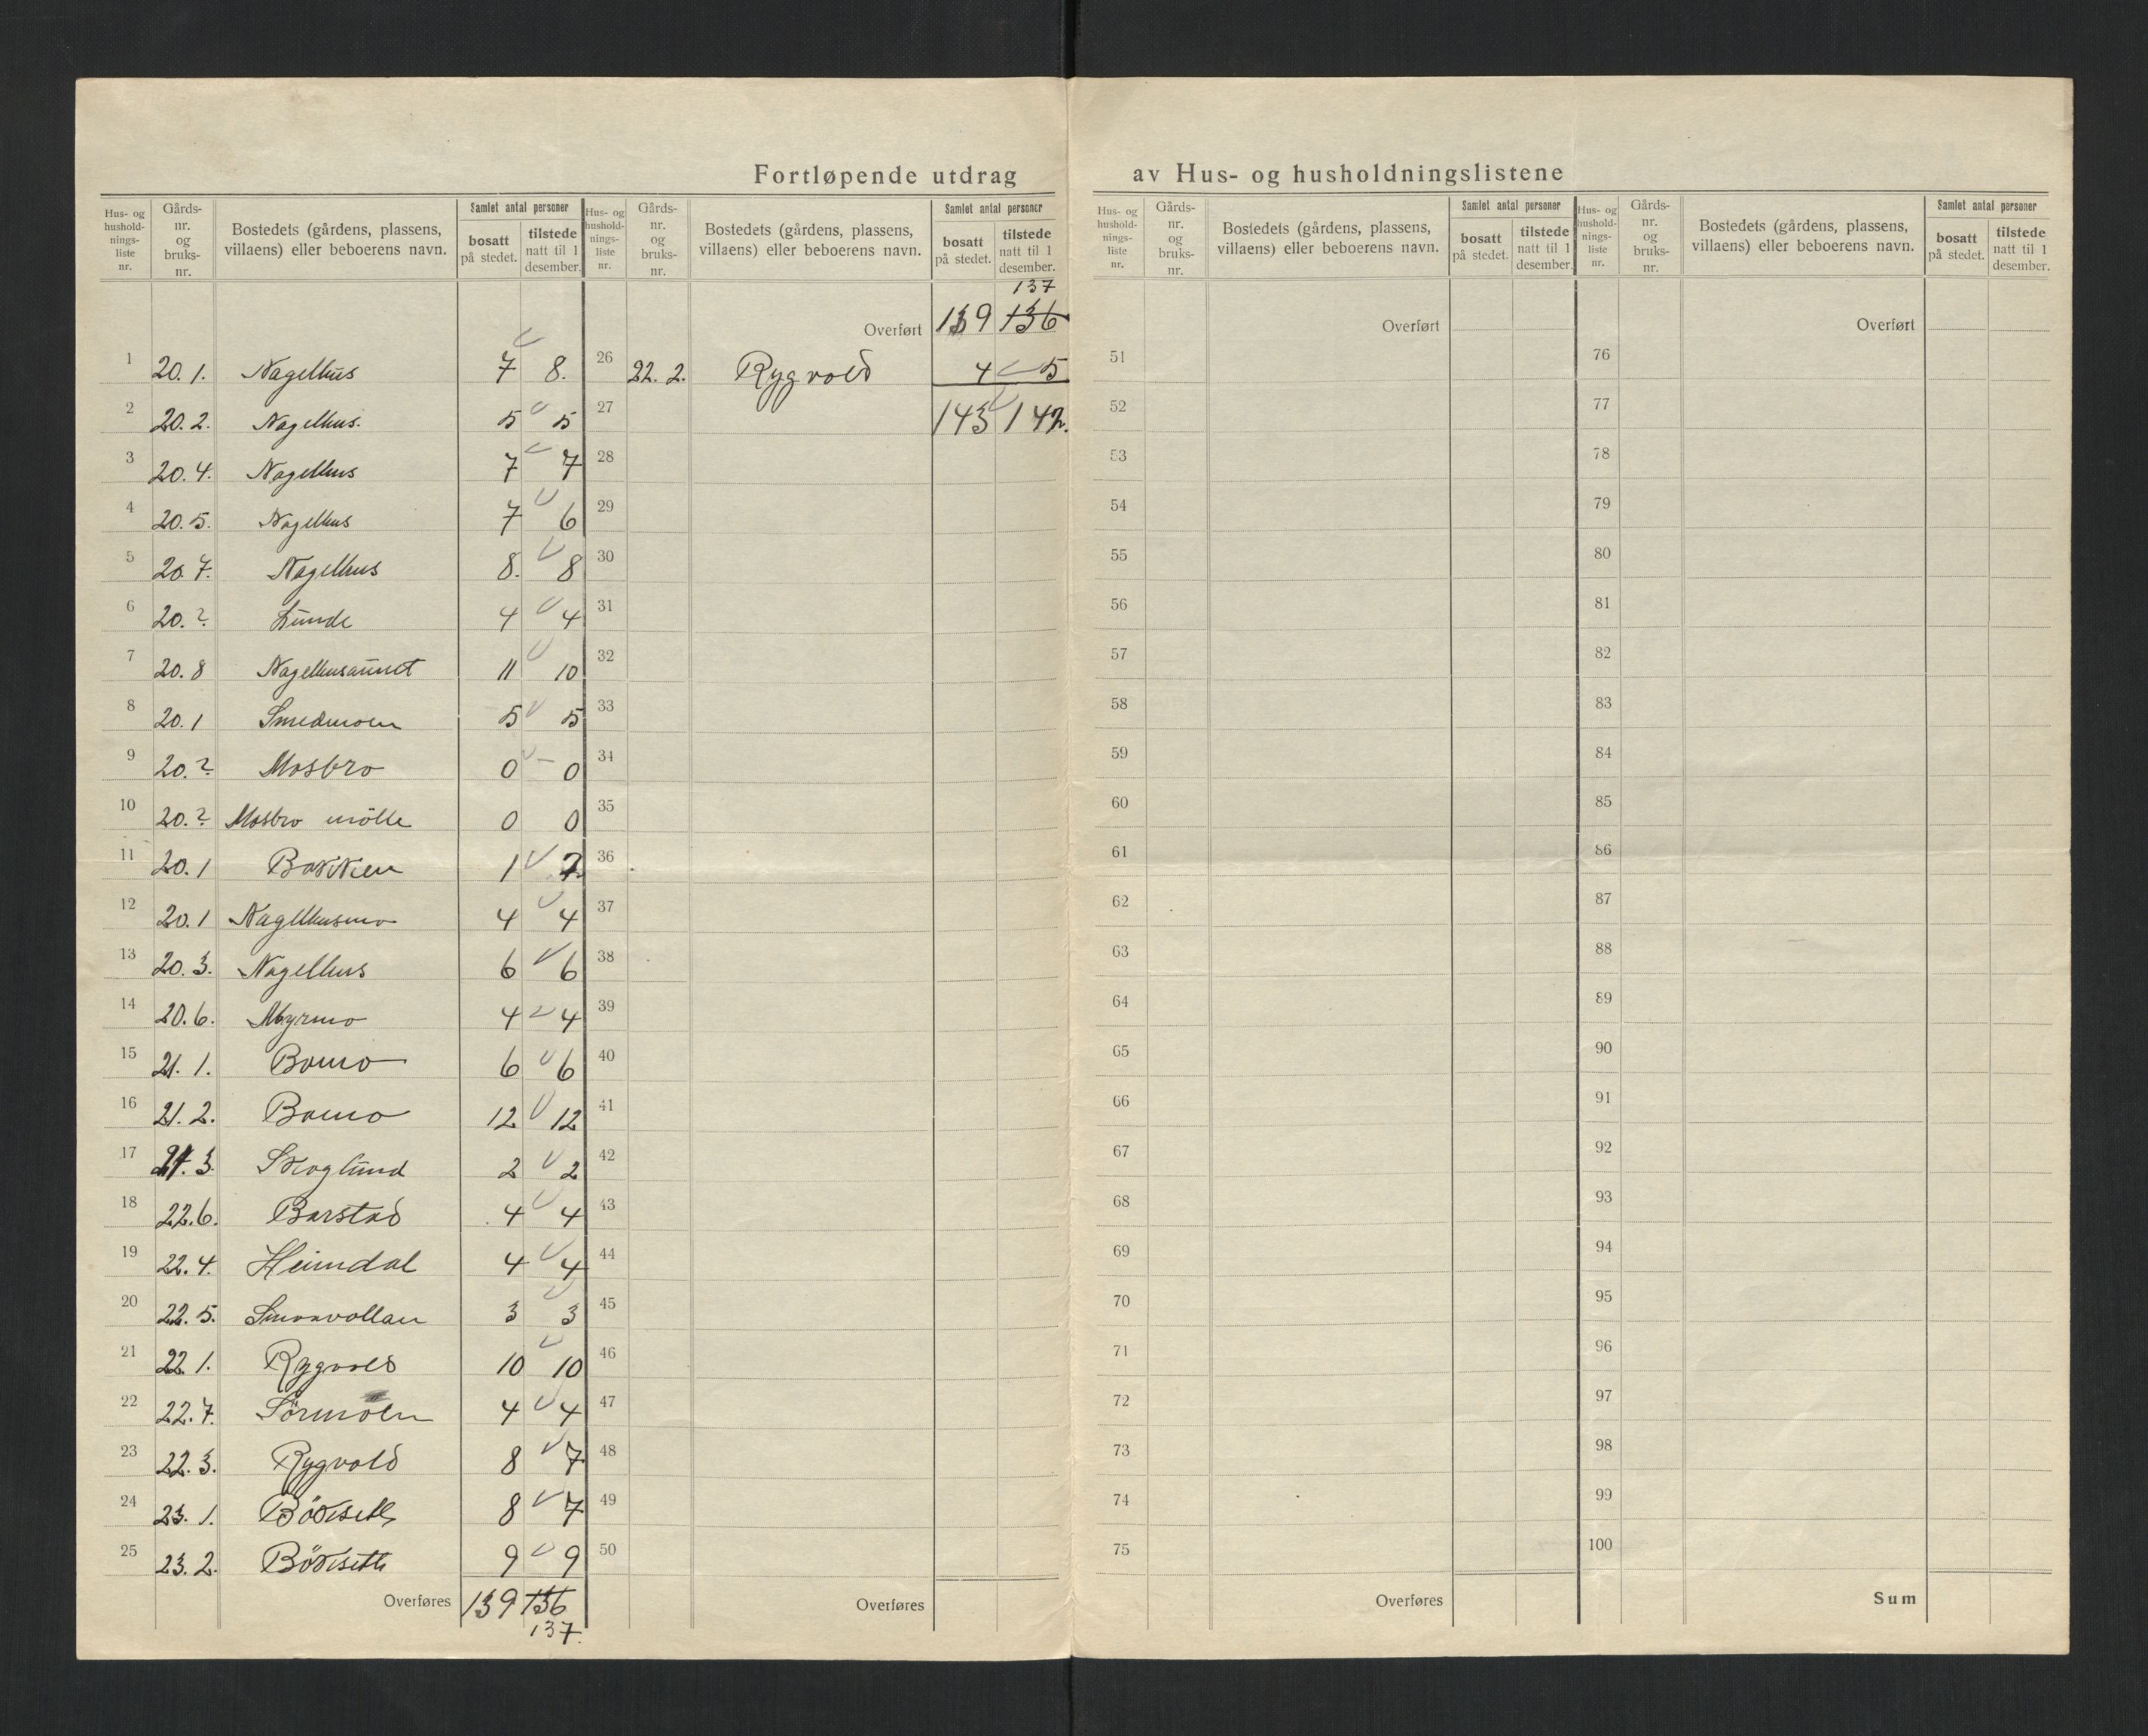 Fortløpende utdrag av Hus- og husholdningslistene
Hus- og hushold-nings-liste nr. Gårds-nr. og bruks-nr. Bostedets (gårdens, plassens, villaens) eller beboerens navn. Samlet antal personer bosatt på stedet. tilstede natt til 1 desember.
1 20. 1. Nagelhus 7 8.
2 20. 2. Nagelhus. 5 5
3 20. 4. Nagelhus 7 7
4 20. 5. Nagelhus 7 6
5 20. 7. Nagelhus 8. 8
6 20. ? Lunde 4 4
7 20. 8 Nagelhusaunet 11 10
8 20. 1 Smedmoen 5 5
9 20. ? Mosbro 0 – 0
10 20. ? Mosbro mölle 0 0
11 20. 1 Bakken 1 2
12 20. 1 Nagelhusmo 4 4
13 20. 3. Nagelhus 6 6
14 20. 6. Myrmo 4 4
15 21. 1. Bomo 6 6
16 21. 2. Bomo 12 12
17 21. 3. Skoglund 2 2
18 22. 6. Barstad 4 4
19 22. 4. Heimdal 4 4
20 22. 5. Smoavollan 3 3
21 22. 1. Rygvold 10 10
22 22. 7. Sörmoen 4 4
23 22. 3. Rygvold 8 7
24 23. 1. Bökseth 8 7
25 23. 2. Bökseth 9 9
Overføres 139 136
137.
Hus- og hushold-nings-liste nr. Gårds-nr. og bruks-nr. Bostedets (gårdens, plassens, villaens) eller beboerens navn. Samlet antal personer bosatt på stedet. tilstede natt til 1 desember.
137
Overført 139 136
26 22. 2. Rygvold 4 5
27 143 142.
28
29
30
31
32
33
34
35
36
37
38
39
40
41
42
43
44
45
46
47
48
49
50
Overføres
Hus- og hushold-nings-liste nr. Gårds-nr. og bruks-nr. Bostedets (gårdens, plassens, villaens) eller beboerens navn. Samlet antal personer bosatt på stedet. tilstede natt til 1 desember.
Overført
51
52
53
54
55
56
57
58
59
60
61
62
63
64
65
66
67
68
69
70
71
72
73
74
75
Overføres
Hus- og hushold-nings-liste nr. Gårds-nr. og bruks-nr. Bostedets (gårdens, plassens, villaens) eller beboerens navn. Samlet antal personer bosatt på stedet. tilstede natt til 1 desember.
Overført
76
77
78
79
80
81
82
83
84
85
86
87
88
89
90
91
92
93
94
95
96
97
98
99
100
Sum